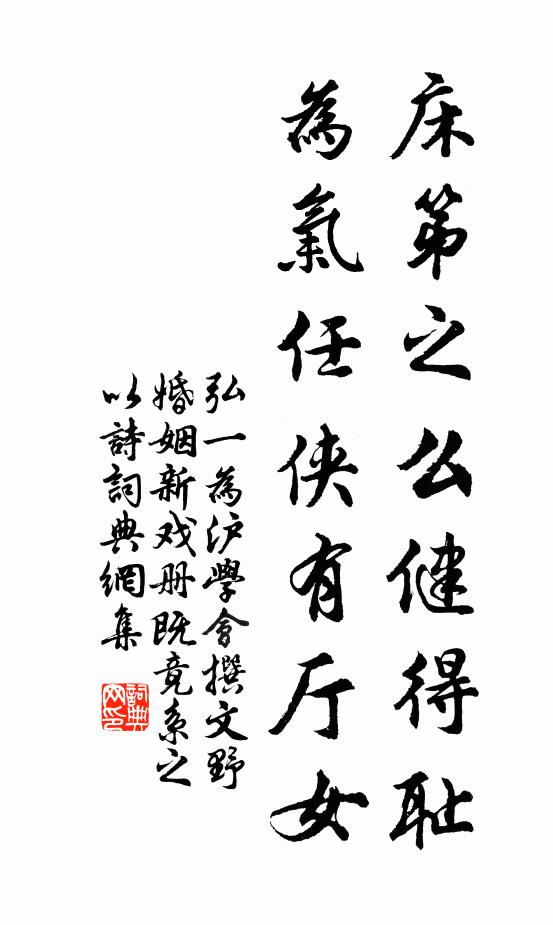 床第之么健得耻
為氣任侠有厅女
弘一為沪學會撰文野
婚姻新戏册既竟系之
以詩詞典網集
詞典
网印